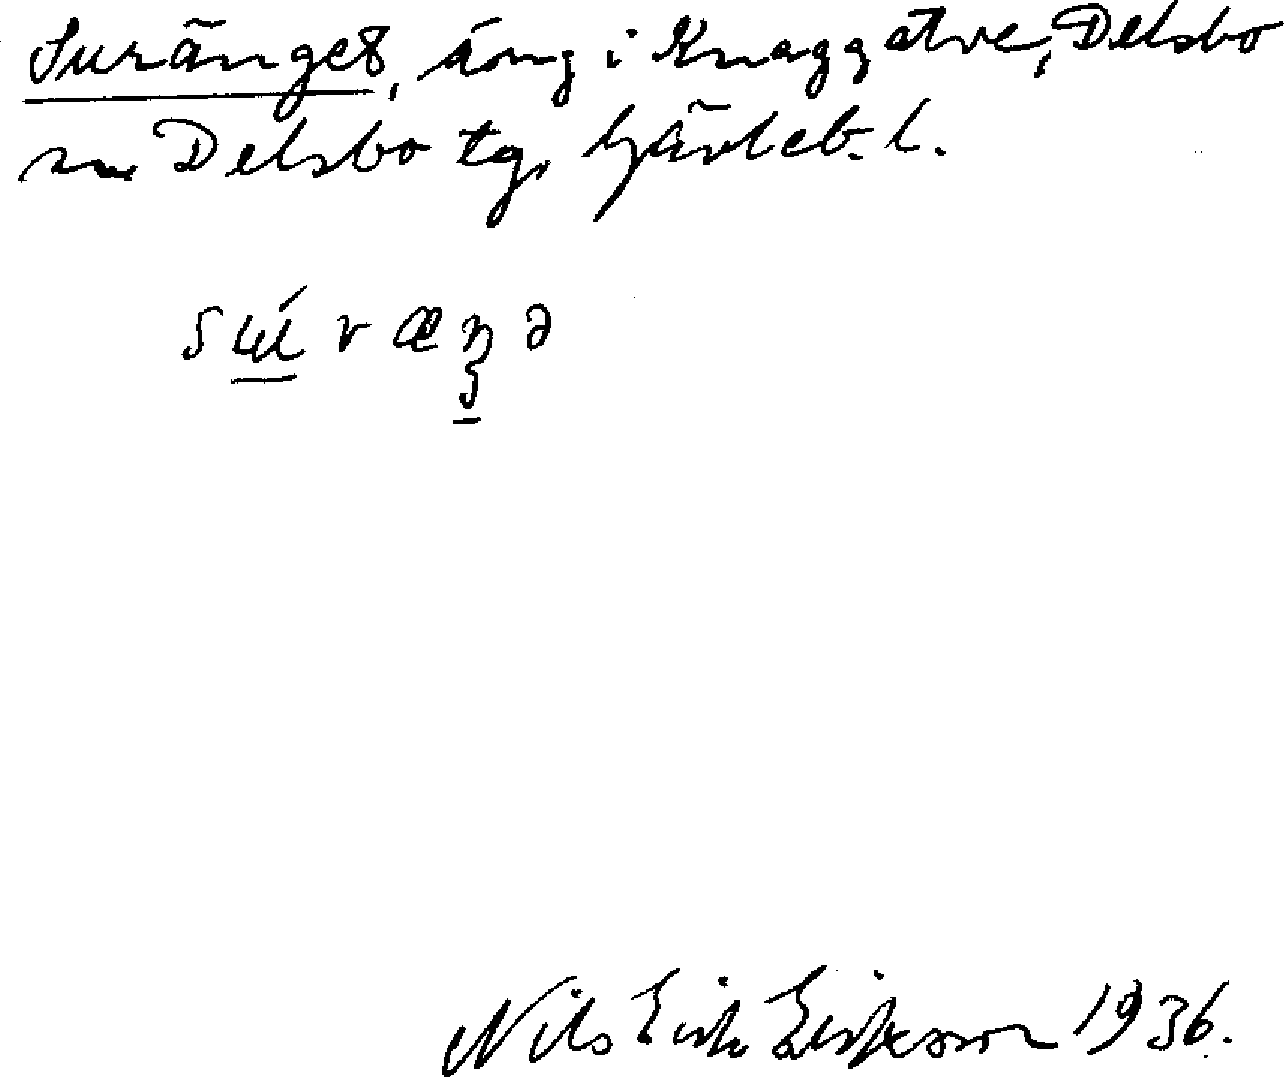 Suränget, äng i Knaggälve, Delsbo
sn Delsbo tg, Gävleb. l.
sú̱ræŋə
Nils Erik Eriksson 1936.